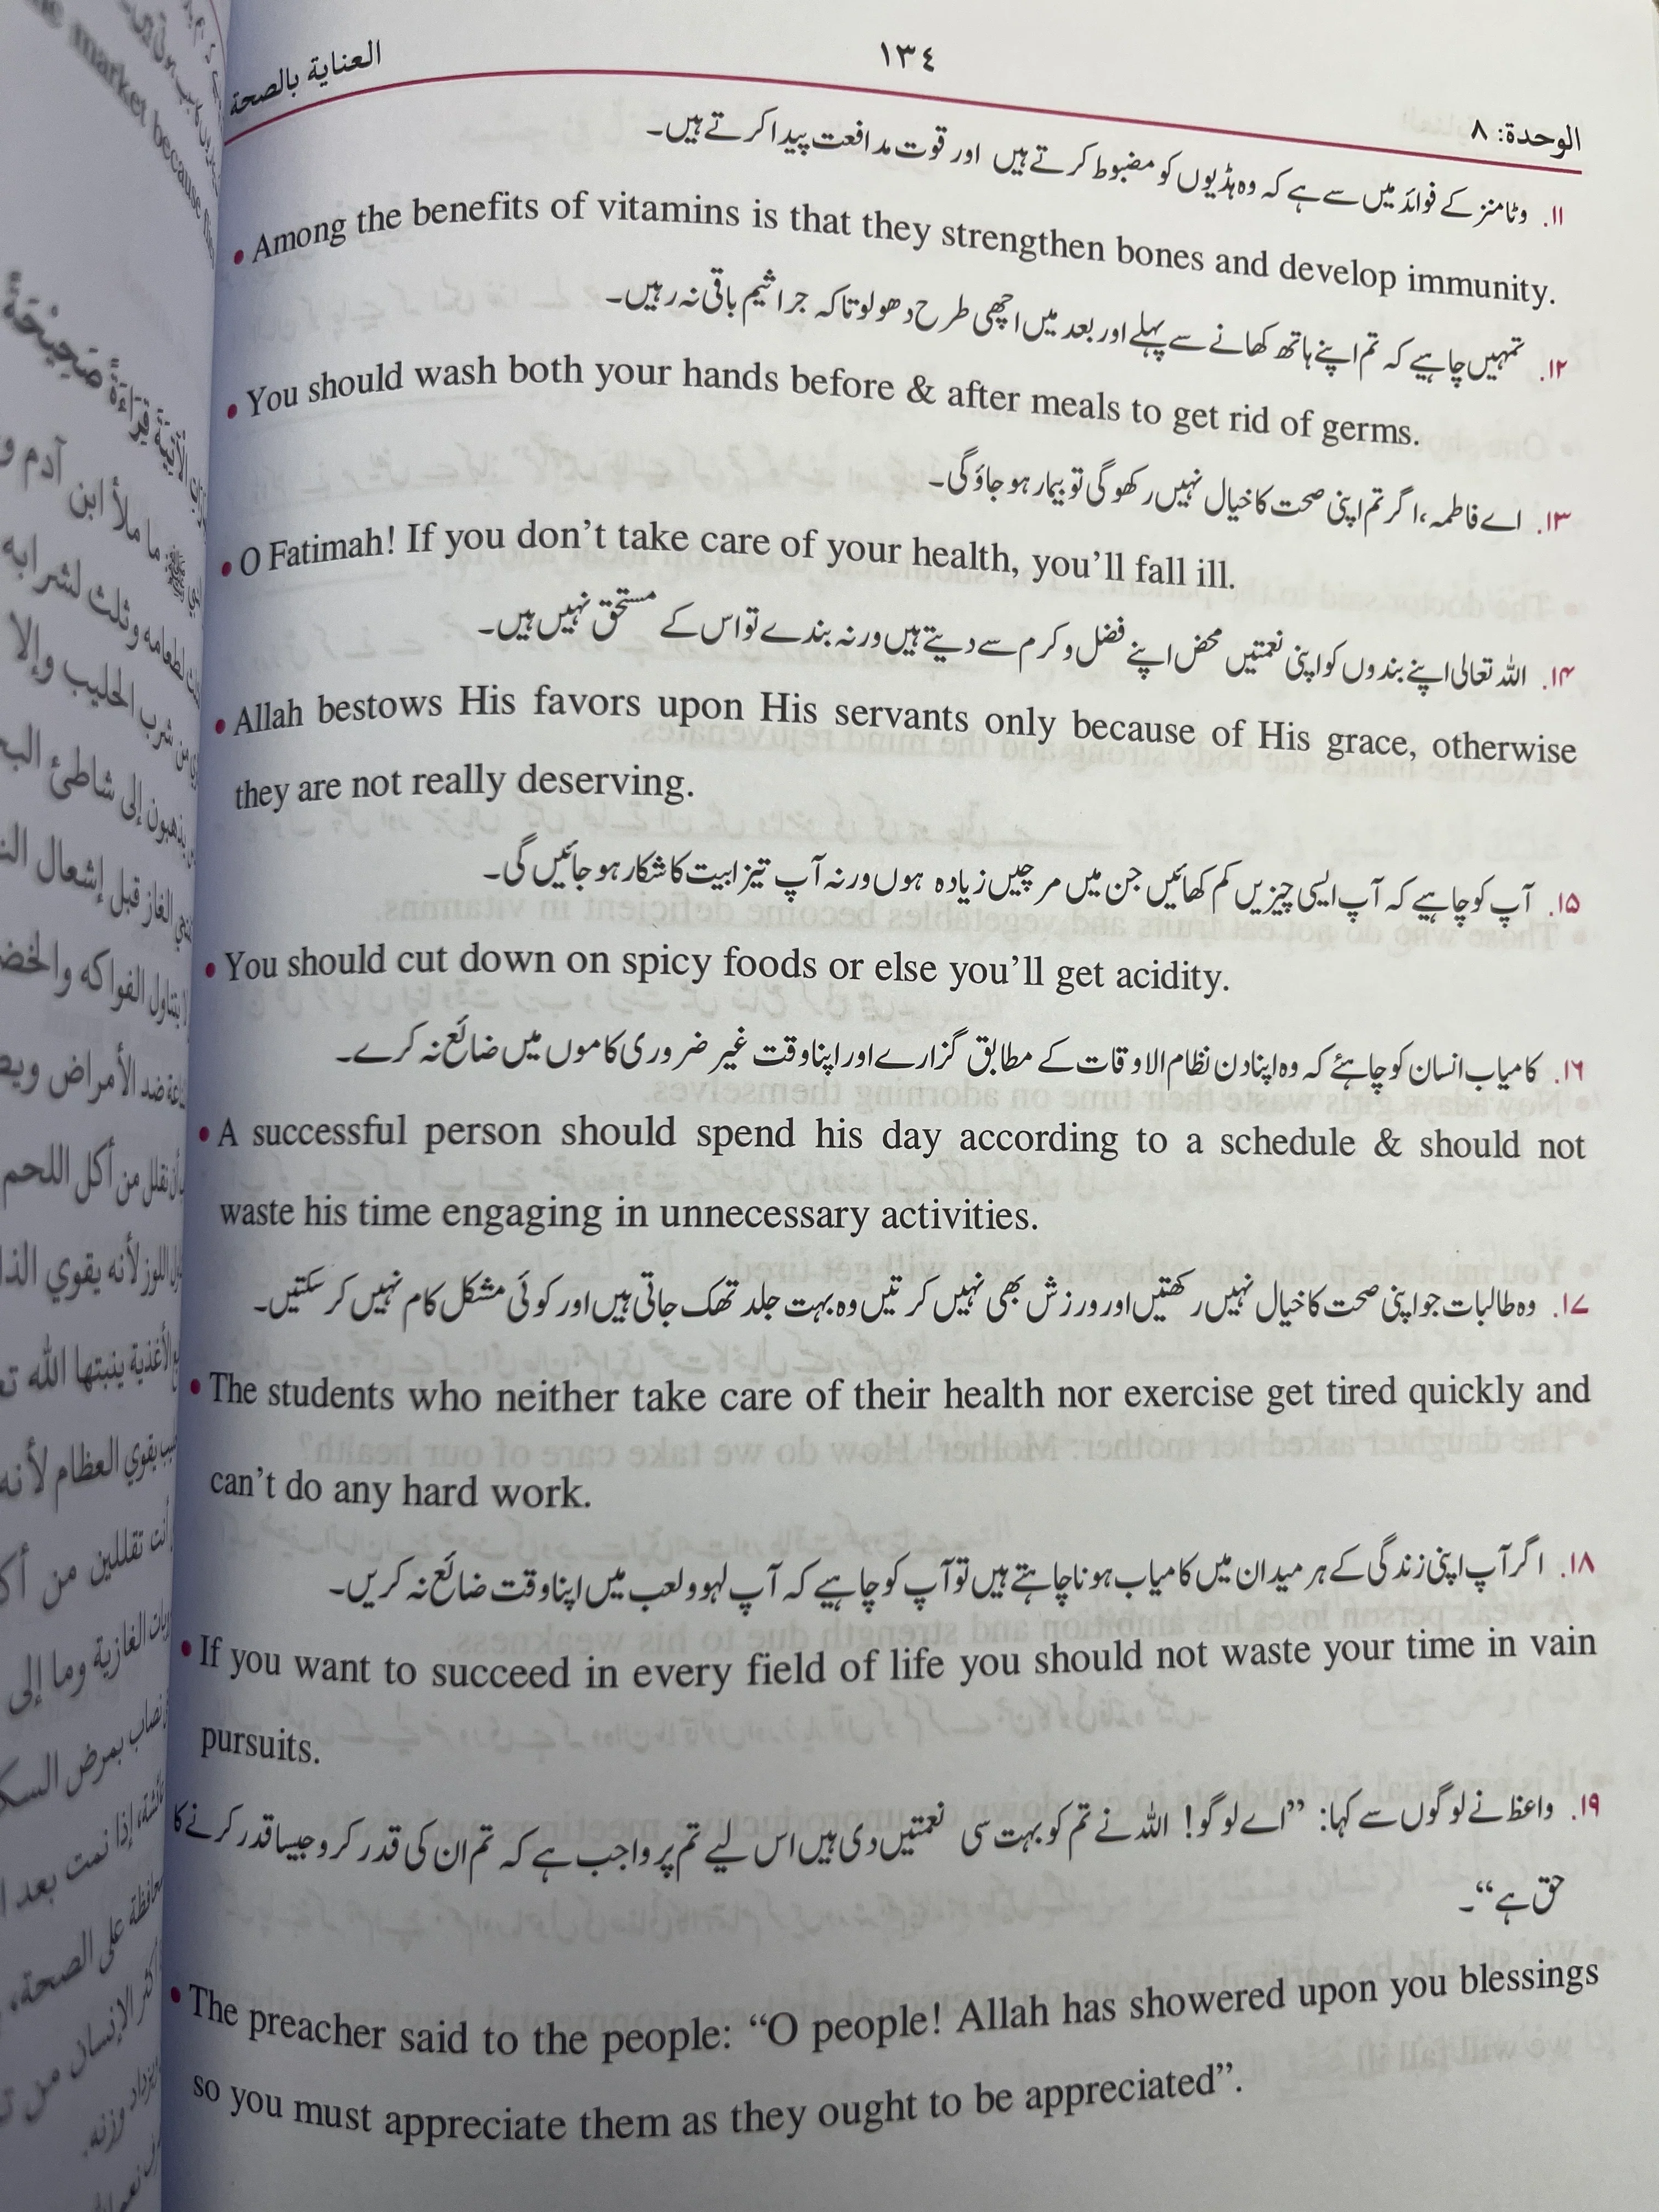 الوحدة: ٨
١٣٤
العناية بالصحة
۱۱. وٹامنز کے فوائد میں سے ہے کہ وہ ہڈیوں کو مضبوط کرتے ہیں اور قوت مدافعت پیدا کرتے ہیں۔
• Among the benefits of vitamins is that they strengthen bones and develop immunity.
۱۲. تمہیں چاہیے کہ تم اپنے ہاتھ کھانے سے پہلے اور بعد میں اچھی طرح دھولو تاکہ جراثیم باقی نہ رہیں۔
• You should wash both your hands before & after meals to get rid of germs.
۱۳. اے فاطمہ، اگر تم اپنی صحت کا خیال نہیں رکھو گی تو بیمار ہو جاؤ گی۔
• O Fatimah! If you don’t take care of your health, you’ll fall ill.
۱۴. اللہ تعالی اپنے بندوں کو اپنی نعمتیں محض اپنے فضل و کرم سے دیتے ہیں ورنہ بندے تو اس کے مستحق نہیں ہیں۔
• Allah bestows His favors upon His servants only because of His grace, otherwise
they are not really deserving.
۱۵. آپ کو چاہیے کہ آپ ایسی چیزیں کم کھائیں جن میں مرچیں زیادہ ہوں ورنہ آپ تیزابیت کا شکار ہو جائیں گی۔
• You should cut down on spicy foods or else you’ll get acidity.
۱۶. کامیاب انسان کو چاہئے کہ وہ اپنا دن نظام الاوقات کے مطابق گزارے اور اپنا وقت غیر ضروری کاموں میں ضائع نہ کرے۔
• A successful person should spend his day according to a schedule & should not
waste his time engaging in unnecessary activities.
۱۷. وہ طالبات جو اپنی صحت کا خیال نہیں رکھتیں اور ورزش بھی نہیں کرتیں وہ بہت جلد تھک جاتی ہیں اور کوئی مشکل کام نہیں کر سکتیں۔
• The students who neither take care of their health nor exercise get tired quickly and
can’t do any hard work.
۱۸. اگر آپ اپنی زندگی کے ہر میدان میں کامیاب ہونا چاہتے ہیں تو آپ کو چاہیے کہ آپ لہو ولعب میں اپنا وقت ضائع نہ کریں۔
• If you want to succeed in every field of life you should not waste your time in vain
pursuits.
۱۹. واعظ نے لوگوں سے کہا: ”اے لوگو! اللہ نے تم کو بہت سی نعمتیں دی ہیں اس لیے تم پر واجب ہے کہ تم ان کی قدر کرو جیسا قدر کرنے کا
حق ہے“۔
• The preacher said to the people: “O people! Allah has showered upon you blessings
so you must appreciate them as they ought to be appreciated”.
market because
قراءة صحيحة
ما ملأ ابن آدم
لطعامه وثلث لشرابه
من شرب الحليب وإلا
يذهبون إلى شاطئ
الغاز قبل إشعال
يتناول الفواكه
ضد الأمراض
نقلل من أكل اللحم
اللوز لأنه يقوي
الأغذية ينبتها الله
يقوي العظام لأنه
أنت تقللين من
الغازية وما إلى
نصاب بمرض
إذا نمت بعد
على الصحة،
الإنسان من
وزنه.